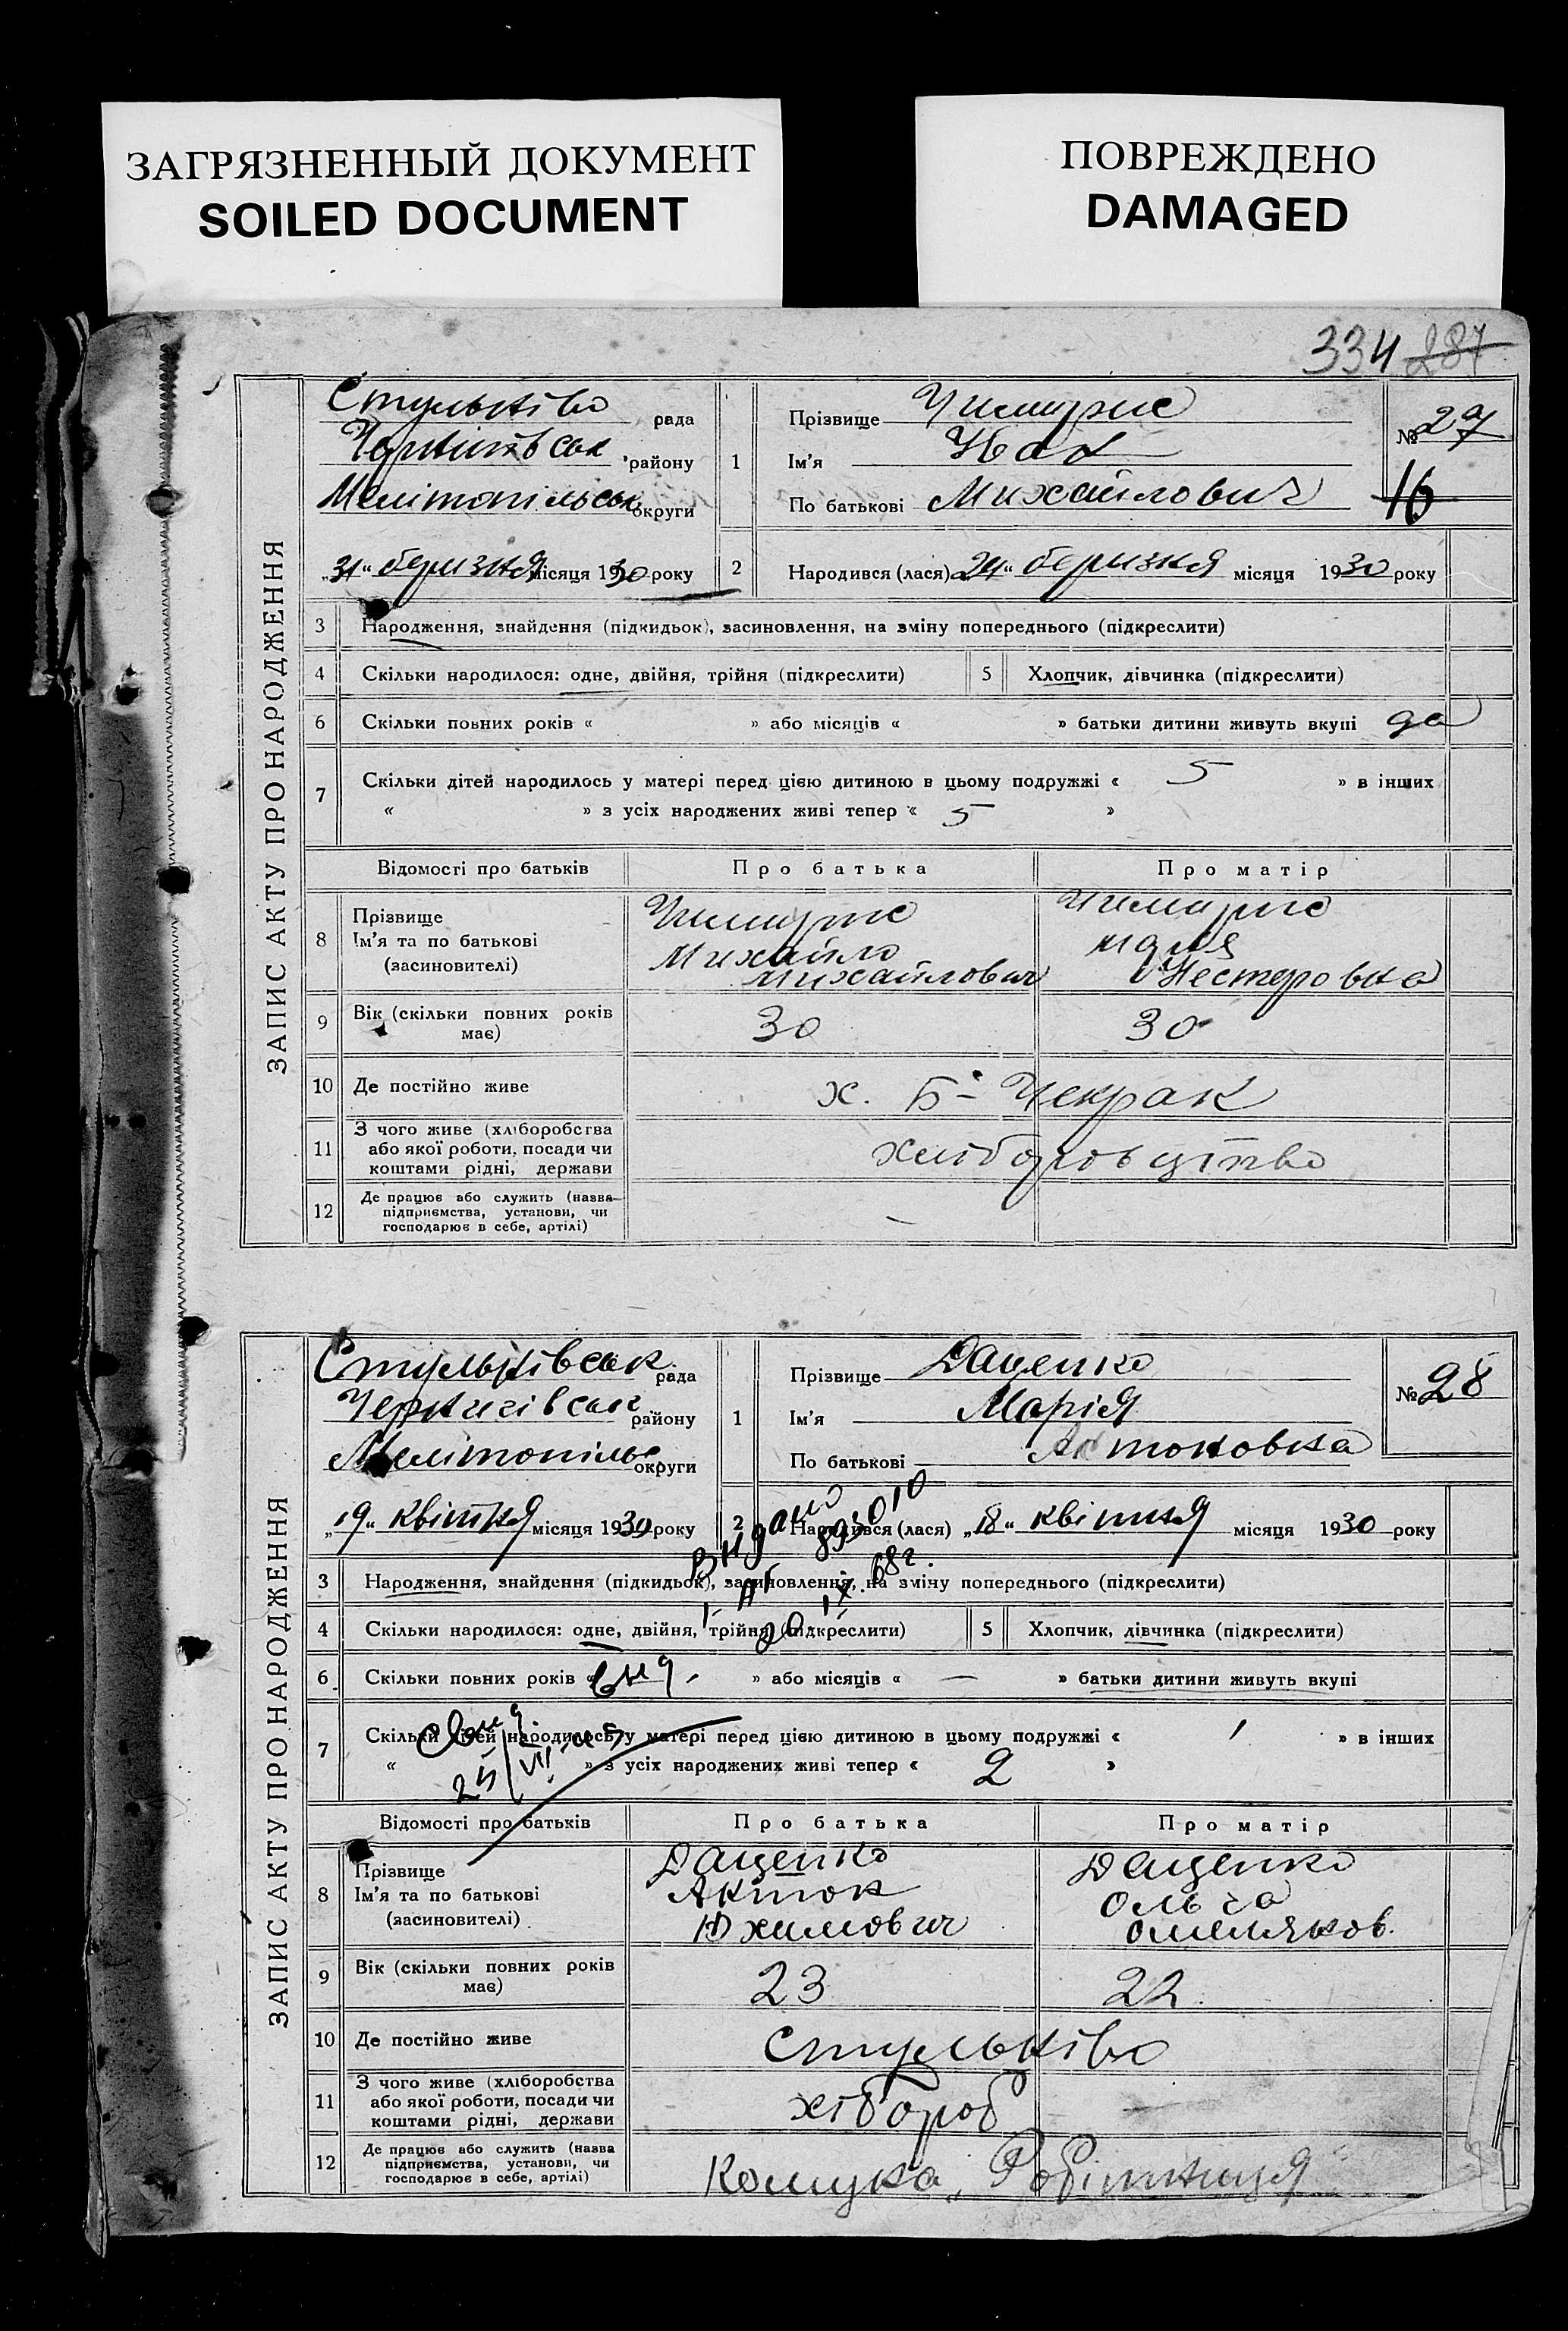 ЗАГРЯЗНЕННЫЙ ДОКУМЕНТ
SOILED DOCUMENT
ПОВРЕЖДЕНО
DAMAGED
334 287
ЗАПИС АКТУ ПРО НАРОДЖЕННЯ
Стульнієво рада
Чернигівськ району
Мелітопільськ округи
„31“ беризня місяця 1930 року
1 Прізвище Чимирис
Ім'я Иван
По батькові Михайлович
№ 27
16
2 Народився (лася) 24“ беризня місяця 1930 року
3 Народження, знайдення (підкидьок), засиновлення, на зміну попереднього (підкреслити)
4 Скільки народилося: одне, двійня, трійня (підкреслити) 5 Хлопчик, дівчинка (підкреслити)
6 Скільки повних років « » або місяців « » батьки дитини живуть вкупі да
7 Скільки дітей народилось у матері перед цією дитиною в цьому подружжі « 5 » в інших
« » з усіх народжених живі тепер « 5 »
Відомості про батьків Про батька Про матір
8 Прізвище
Ім'я та по батькові
(засиновителі)
Чимирис
Михайло
Михайлович
Чимирис
Нестеровна
9 Вік (скільки повних років має) 30 30
10 Де постійно живе х. Б-Чекрак
11 З чого живе (хліборобства
або якої роботи, посади чи
коштами рідні, держави
12 Де працює або служить (назва
підприємства, установи, чи
господарює в себе, артілі) —
ЗАПИС АКТУ ПРО НАРОДЖЕННЯ
Стульнівськ рада
Чернигівськ району
Мелітопільс округи
„19“ квітня місяця 1930 року
1 Прізвище Даценко
Ім'я Марія
По батькові Антоновна
№ 28
2 Народився (лася) „18“ квітня місяця 1930 року
Видано
893010
20.IX.68г.
3 Народження, знайдення (підкидьок), засиновлення, на зміну попереднього (підкреслити)
4 Скільки народилося: одне, двійня, трійня (підкреслити) 5 Хлопчик, дівчинка (підкреслити)
6 Скільки повних років « » або місяців « — » батьки дитини живуть вкупі
7 Скільки дітей народилось у матері перед цією дитиною в цьому подружжі « 1 » в інших
« » з усіх народжених живі тепер « 2 »
25/VII
Відомості про батьків Про батька Про матір
8 Прізвище
Ім'я та по батькові
(засиновителі)
Даценко
Антон
Юхимович
Даценко
Ольга
Омеляков.
9 Вік (скільки повних років має) 23 22
10 Де постійно живе Стульнієво
11 З чого живе (хліборобства
або якої роботи, посади чи
коштами рідні, держави
хібороб
12 Де працює або служить (назва
підприємства, установи, чи
господарює в себе, артілі)
Комуна „Робітниця